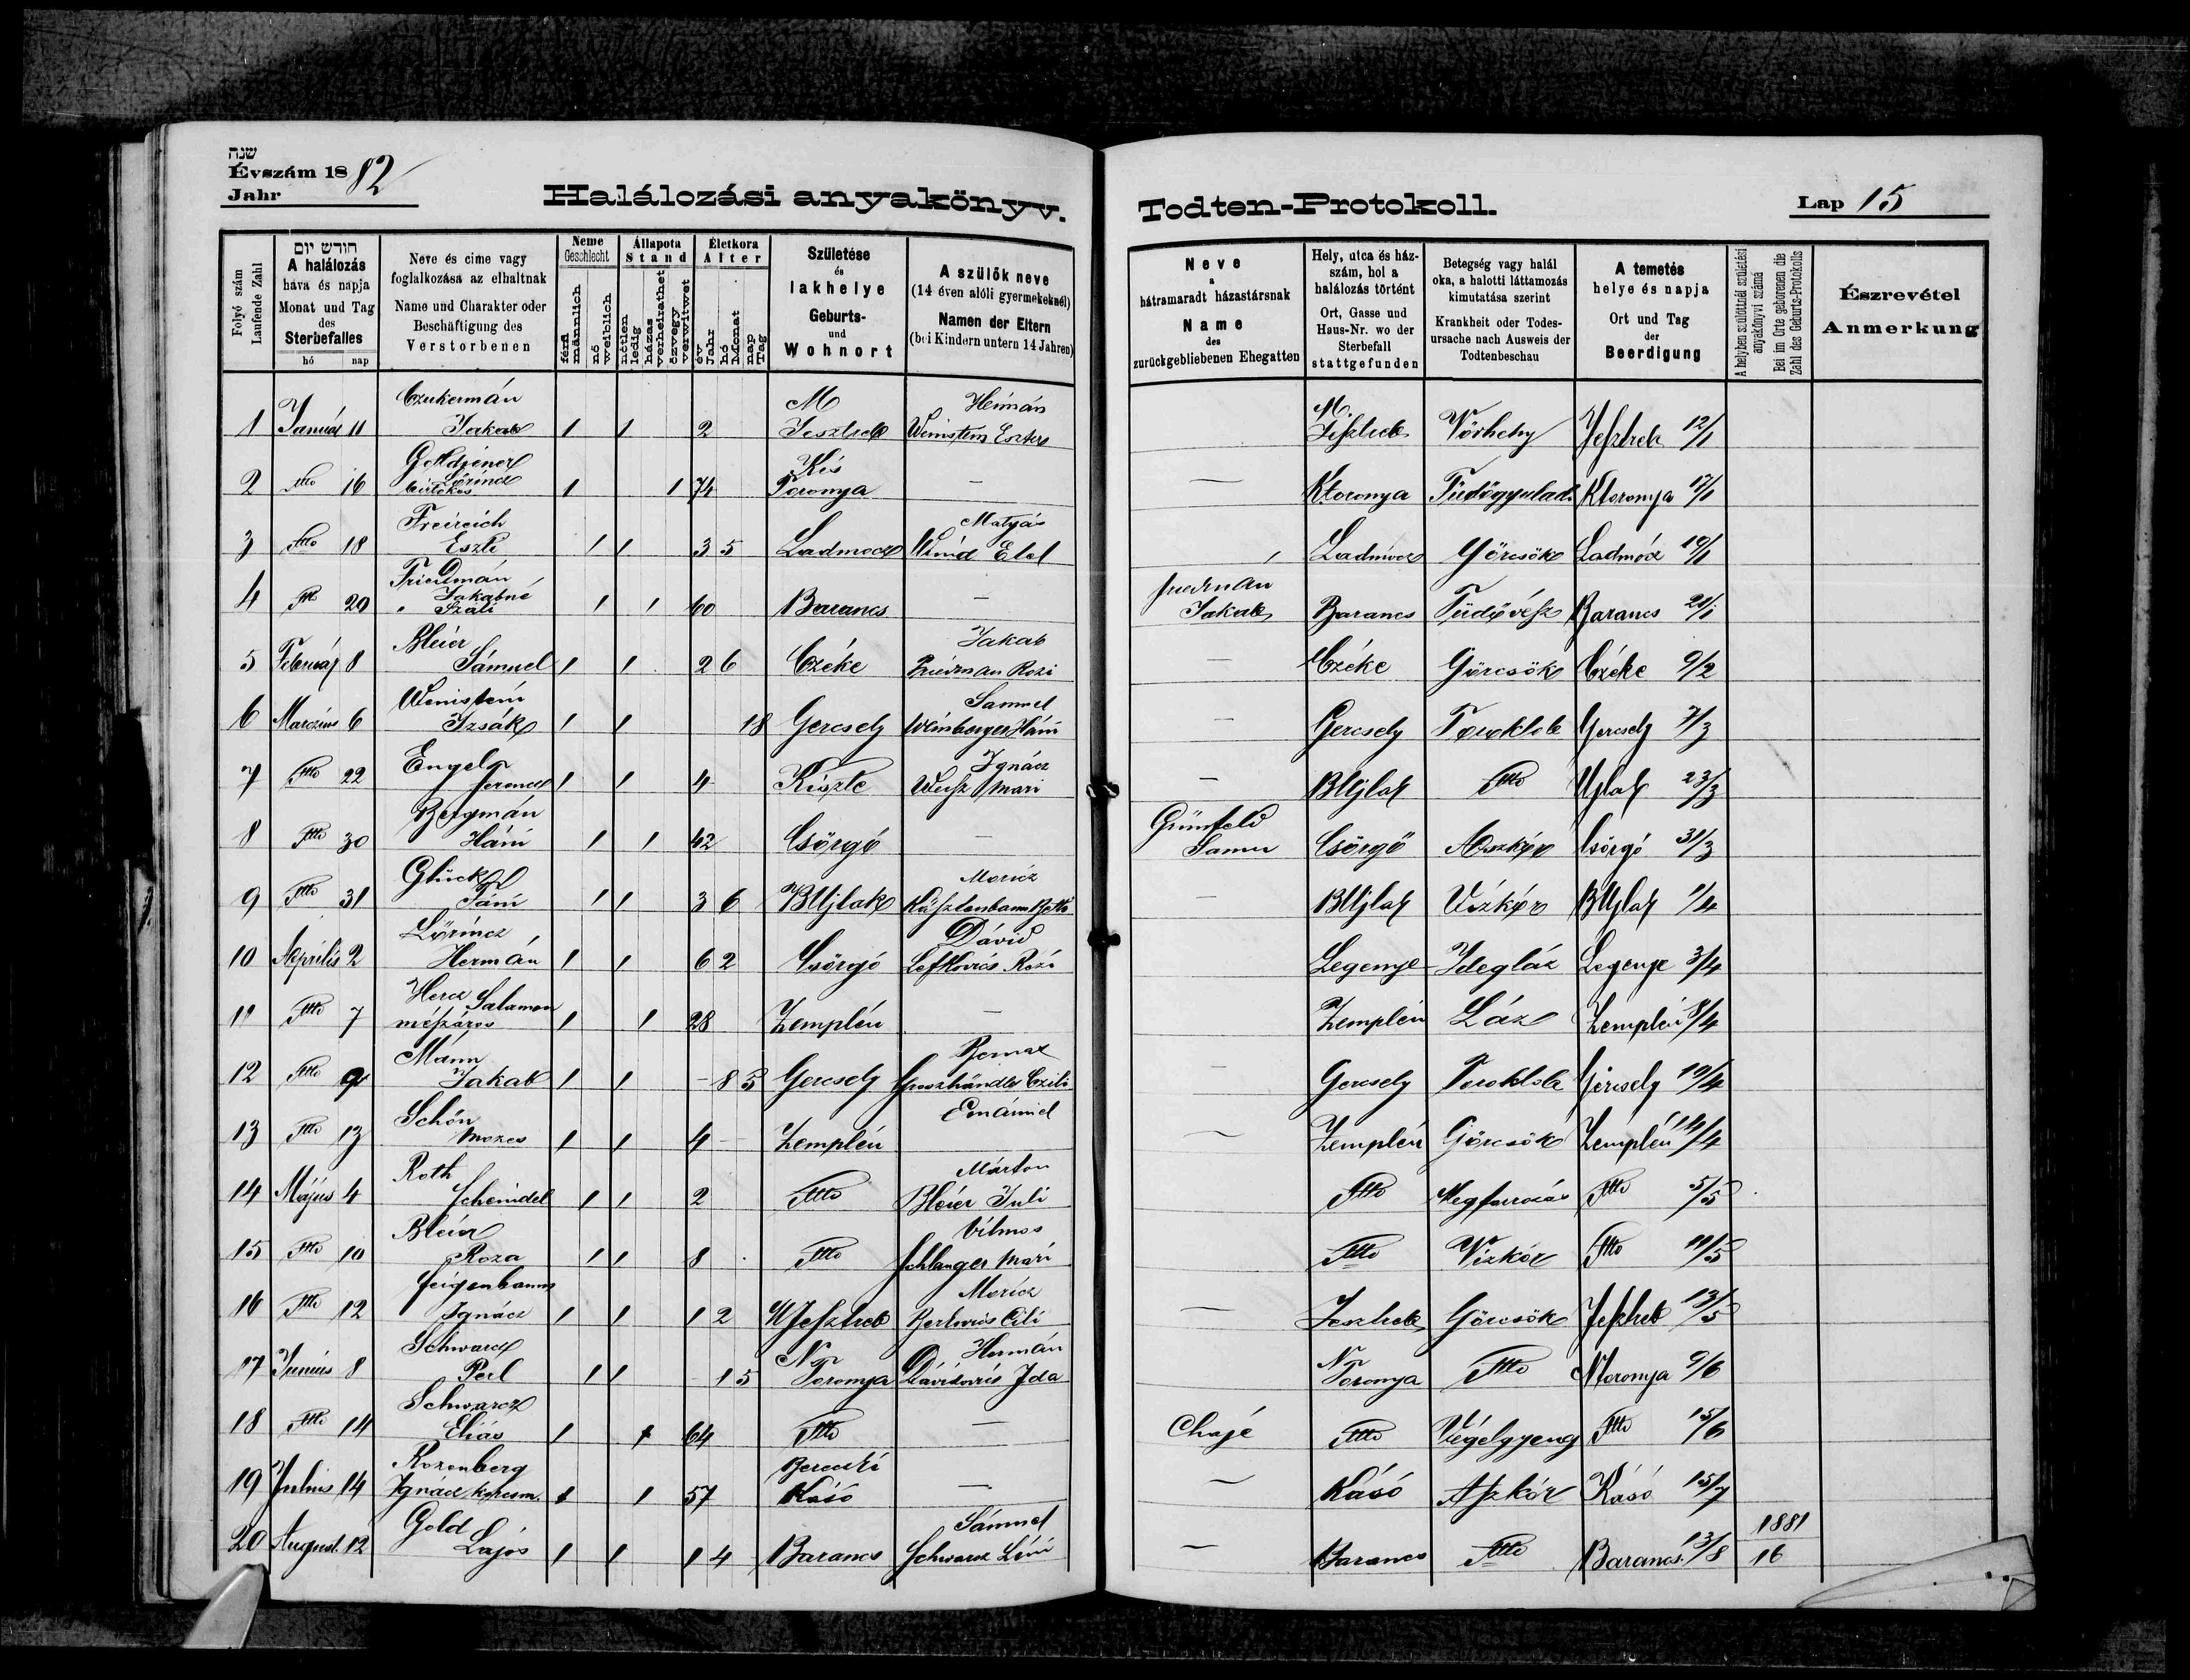 שנה
Évszám 1882
Jahr
Halálozási anyakönyv.
Todten-Protokoll.
Lap 15
Folyó szám
Laufende Zahl
חודש יום
A halálozás
hava és napja
Monat und Tag
des
Sterbefalles
hó nap
Neve és cime vagy
foglalkozása az elhaltnak
Name und Charakter oder
Beschäftigung des
Verstorbenen
Neme
Geschlecht
férfi
männlich
nő
weiblich
Állapota
Stand
nőtlen
ledig
házas
verheirathet
özvegy
verwitwet
Életkora
Alter
év
Jahr
hó
Monat
nap
Tag
Születése
és
lakhelye
Geburts-
und
Wohnort
A szülők neve
(14 éven alóli gyermekeknél)
Namen der Eltern
(bei Kindern untern 14 Jahren)
Neve
a
hátramaradt házastársnak
Name
des
zurückgebliebenen Ehegatten
Hely, utca és ház-
szám, hol a
halálozás történt
Ort, Gasse und
Haus-Nr. wo der
Sterbefall
stattgefunden
Betegség vagy halál
oka, a halotti láttamozás
kimutatása szerint
Krankheit oder Todes-
ursache nach Ausweis der
Todtenbeschau
A temetés
helye és napja
Ort und Tag
der
Beerdigung
A helyben szülöttnél születési
anyakönyvi száma
Bei im Orte geborenen die
Zahl des Geburts-Protokolls
Észrevétel
Anmerkung
Czukermán M Heimán M.
1 Január 11 Jakab 1 1 2 Jesztreb Weinstein Eszter Jesztreb Vörheny Jesztreb 12/1
Kis
2 Ítto 16 Lőrincz birtokos 1 1 74 Toronya — — Ktoronya Ktoronya 17/1
Freireich Matyás
3 Ítto 18 Eszti 1 1 3 5 Ladmocz Etel Ladmócz Görcsök Ladmócz 19/1
Friedmán Jakabné friedman
4 20 " Száli 1 1 60 Barancs — Jakab Barancs Tüdővész Barancs 21/1
Bleier Jakab
5 Február 8 Sámuel 1 1 2 6 Czéke Friedman Rozi — Czéke Görcsök Czéke 9/2
Weinstein Samuel
6 Marczius 6 Izsák 1 1 18 Gercsely Weinberger Háni — Gercsely Toroklob Gercsely 7/3
Engel Ignácz
7 Ítto 22 ferencz 1 1 4 Kiszte Weisz Mari — BUjlak Ítto Ujlak 23/3
Bergmán Grünfeld
8 Ítto 30 Háni 1 1 42 Csörgő — Samu Csörgő Aszkór Csörgő 31/3
Glück Moricz
9 Ítto 31 Fáni 1 1 3 6 BUjlak — BUjlak Vízkór BUjlak 1/4
Lőrincz Dávid
10 Április 2 Hermán 1 1 6 2 Csörgő Lefkovics Rozi Legenye Idegláz Legenye 3/4
Hercz Salamon
11 Ítto 7 mészáros 1 1 28 Zemplén — Zemplén Láz Zemplén 8/4
Mánn Bernat
12 Ítto 9 Jakab 1 1 - 8 3 Gercsely Groszhändler Czili — Gercsely Toroklob Gercsely 10/4
Schön Emánuel
13 Ítto 13 Mozes 1 1 4 - Zemplén — Zemplén Görcsök Zemplén 14/4
Roth Márton
14 Május 4 Scheindel 1 1 2 Ítto Bleier Juli Ítto Ítto 5/5
Bleier Vilmos
15 Ítto 10 Roza 1 1 8 Ítto Schlanger Mari Ítto Vízkór Ítto 11/5
feigenbaum Moricz
16 Ítto 12 Ignácz 1 1 1 2 MJesztreb Berkovics Cili — Jesztreb Görcsök Jesztreb 13/5
Schwarcz N Hermán N
17 Junius 8 Perl 1 1 1 5 Toronya Dávidovics Ida Toronya Ítto Ntoronya 9/6
Schwarcz
18 Ítto 14 Eliás 1 1 64 Ítto — Chajé Ítto Végelgyeng Ítto 15/6
Rozenberg Bereczki
19 Julius 14 Ignácz korcsm. 1 1 57 Kásó — — Kásó Aszkór Kásó 15/7
Gold Sámuel 1881
20 August. 12 Lajos 1 1 1 4 Barancs Schwarcz Léni — Barancs Ítto Barancs 13/8 16